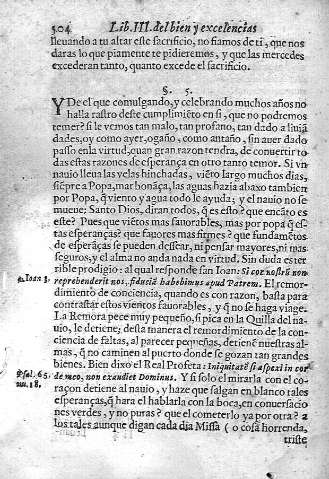 504 Lib. III. del bien y excelencias
lleuando a tu altar este sacrificio, no fiamos de ti, que nos
daras lo que piamente te pidieremos, y que las mercedes
excederan tanto, quanto excede el sacrificio.
§. 5.
Y De el que comulgando, y celebrando muchos años no
halla rastro deste cumplimiẽto en si, que no podremos
temer? si le vemos tan malo, tan profano, tan dado a liuiã
dades, oy como ayer, ogaño, como antaño, sin auer dado
passo en la virtud, quan gran razon tendra, de conuertir to
das estas razones de esperança en otro tanto temor. Si vn
nauio lleua las velas hinchadas, viẽto largo muchos dias,
siẽpre a Popa, mar bonãça, las aguas hazia abaxo tambien
por Popa, q̃ viento y agua todo le ayuda; y el nauio no se
mueue; Santo Dios, diran todos, q̃ es esto? que encãto es
este? Pues que viẽtos mas fauorables, mas por popa q̃ es-
tas esperanças? que fauores mas firmes? que fundamẽtos
de esperãças se pueden dessear, ni pensar mayores, ni mas
seguros, y el alma no anda nada en virtud. Sin duda es ter
rible prodigio: al qual responde san Ioan: Si cor nostrũ non
a Ioan 3. reprehenderit nos, fiduciã habebimus apud Patrem. El remor-
dimiento de conciencia, quando es con razon, basta para
contrastar estos vientos fauorables, y q̃ no se haga viage.
La Remora pece muy pequeño, si pica en la Quilla del na-
uio, le detiene; desta manera el remordimiento de la con-
ciencia de faltas, al parecer pequeñas, detienẽ nuestras al-
mas, q̃ no caminen al puerto donde se gozan tan grandes
bienes. Bien dixo el Real Profeta: iniquitatẽ si aspexi in cor
Psal. 65. de meo, non exaudiet Dominus. Y si solo el mirarla con el co-
nu. 18. raçon detiene al nauio, y haze que salgan en blanco tales
esperanças, q̃ hara el hablarla con la boca, en conuersacio
nes verdes, y no puras? que el cometerlo ya por otra? a
los tales aunque digan cada dia Missa (o cosa horrenda,
triste